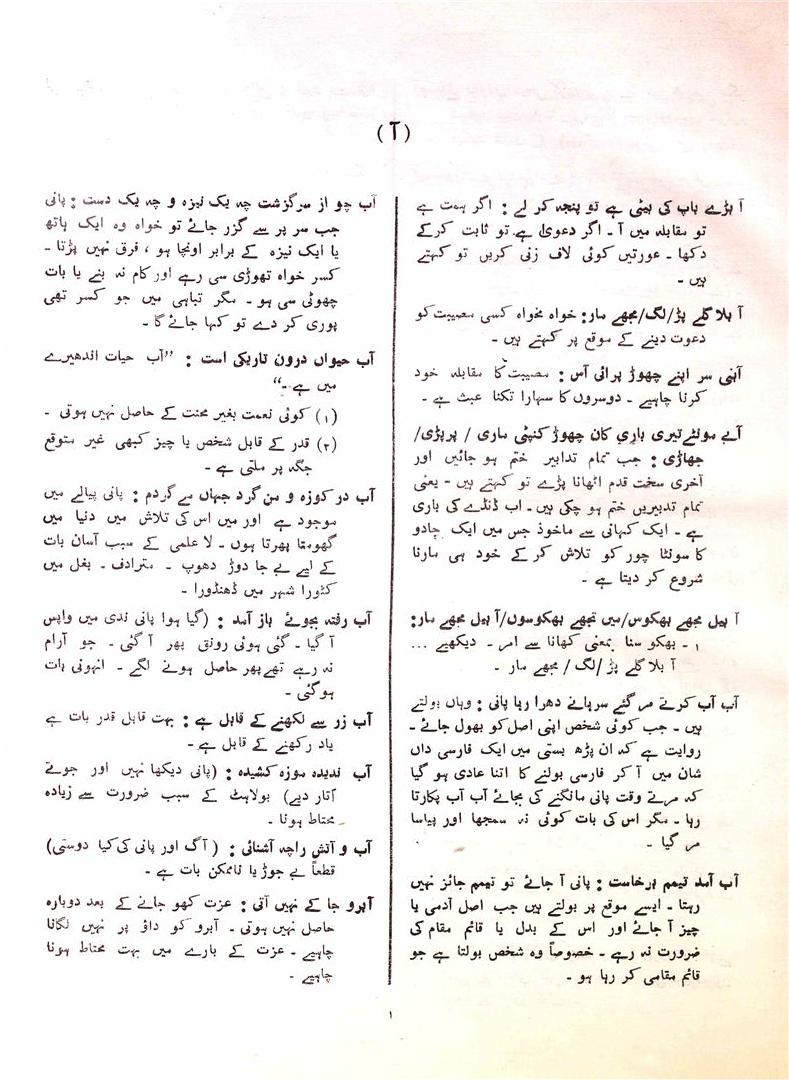 (آ)
آ بڑے باپ کی بیٹی ہے تو پنجہ کر لے : اگر ہمت ہے
تو مقابلہ میں آ ۔ اگر دعویٰ ہے تو ثابت کرکے
دکھا ۔ عورتیں کوئی لاف زنی کریں تو کہتے
ہیں ۔
آ بلا گلے پڑ/لگ/مجھے مار: خواہ مخواہ کسی مصیبت کو
دعوت دینے کے موقع پر کہتے ہیں ۔
آپنی سر اپنے چھوڑ پرائی آس : مصیبت کا مقابلہ خود
کرنا چاہیے ۔ دوسروں کا سہارا تکنا عبث ہے ۔
آے سونٹے تیری باری کان چھوڑ کنپٹی ماری / پر پڑی/
جھاڑی : جب تمام تدابیر ختم ہو جائیں اور
آخری سخت قدم اٹھانا پڑے تو کہتے ہیں ۔ یعنی
تمام تدبیریں ختم ہو چکی ہیں ۔ اب ڈنڈے کی باری
ہے ۔ ایک کہانی سے ماخوذ جس میں ایک جادو
کا سونٹا چور کو تلاش کر کے خود ہی مارنا
شروع کر دیتا ہے ۔
آ بیل مجھے بھکوس/میں تجھے بھکوسوں/آ بیل مجھے مار:
۱ ۔ بھکو سنا بمعنی کھانا سے امر ۔ دیکھیے ...
آ بلا گلے پڑ /لگ / مجھے مار ۔
آب آب کرتے مر گئے سرہانے دھرا رہا پانی : وہاں بولتے
ہیں ۔ جب کوئی شخص اپنی اصل کو بھول جائے ۔
روایت ہے کہ ان پڑھ بستی میں ایک فارسی داں
شان میں آ کر فارسی بولنے کا اتنا عادی ہو گیا
کہ مرتے وقت پانی مانگنے کی بجائے آب آب پکارتا
رہا ۔ مگر اس کی بات کوئی نہ سمجھا اور پیاسا
مر گیا ۔
آب آمد تیمم برخاست : پانی آ جائے تو تیمم جائز نہیں
رہتا ۔ ایسے موقع پر بولتے ہیں جب اصل آدمی یا
چیز آ جائے اور اس کے بدل یا قائم مقام کی
ضرورت نہ رہے ۔ خصوصاً وہ شخص بولتا ہے جو
قائم مقامی کر رہا ہو ۔
آب چو از سر گزشت چہ یک نیزہ و چہ یک دست : پانی
جب سر پر سے گزر جائے تو خواہ وہ ایک ہاتھ
یا ایک نیزہ کے برابر اونچا ہو ، فرق نہیں پڑتا ۔
کسر خواہ تھوڑی سی رہے اور کام نہ بنے یا بات
چھوٹی سی ہو ۔ مگر تباہی میں جو کسر تھی
پوری کر دے تو کہا جائے گا ۔
آب حیواں درون تاریکی است : ”آب حیات اندھیرے
میں ہے ۔“
(۱) کوئی نعمت بغیر محنت کے حاصل نہیں ہوتی ۔
(۲) قدر کے قابل شخص یا چیز کبھی غیر متوقع
جگہ پر ملتی ہے ۔
آب در کوزہ و من گرد جہاں مے گردم : پانی پیالے میں
موجود ہے اور میں اس کی تلاش میں دنیا میں
گھومتا پھرتا ہوں ۔ لا علمی کے سبب آسان بات
کے لیے بے جا دوڑ دھوپ ۔ مترادف ۔ بغل میں
کٹورا شہر میں ڈھنڈورا ۔
آب رفتہ بجوئے باز آمد : (گیا ہوا پانی ندی میں واپس
آ گیا ۔ گئی ہوئی رونق پھر آ گئی ۔ جو آرام
نہ رہے تھے پھر حاصل ہونے لگے ۔ انہونی بات
ہو گئی ۔
آب زر سے لکھنے کے قابل ہے : بہت قابل قدر بات ہے
یاد رکھنے کے قابل ہے ۔
آب ندیدہ موزہ کشیدہ : (پانی دیکھا نہیں اور جوتے
اتار دیے) بولاہٹ کے سبب ضرورت سے زیادہ
محتاط ہونا ۔
آب و آتش راچہ آشنائی : (آگ اور پانی کی کیا دوستی)
قطعاً بے جوڑ یا ناممکن بات ہے ۔
آبرو جا کے نہیں آتی : عزت کھو جانے کے بعد دوبارہ
حاصل نہیں ہوتی ۔ آبرو کو داؤ پر نہیں لگانا
چاہیے ۔ عزت کے بارے میں بہت محتاط ہونا
چاہیے ۔
۱